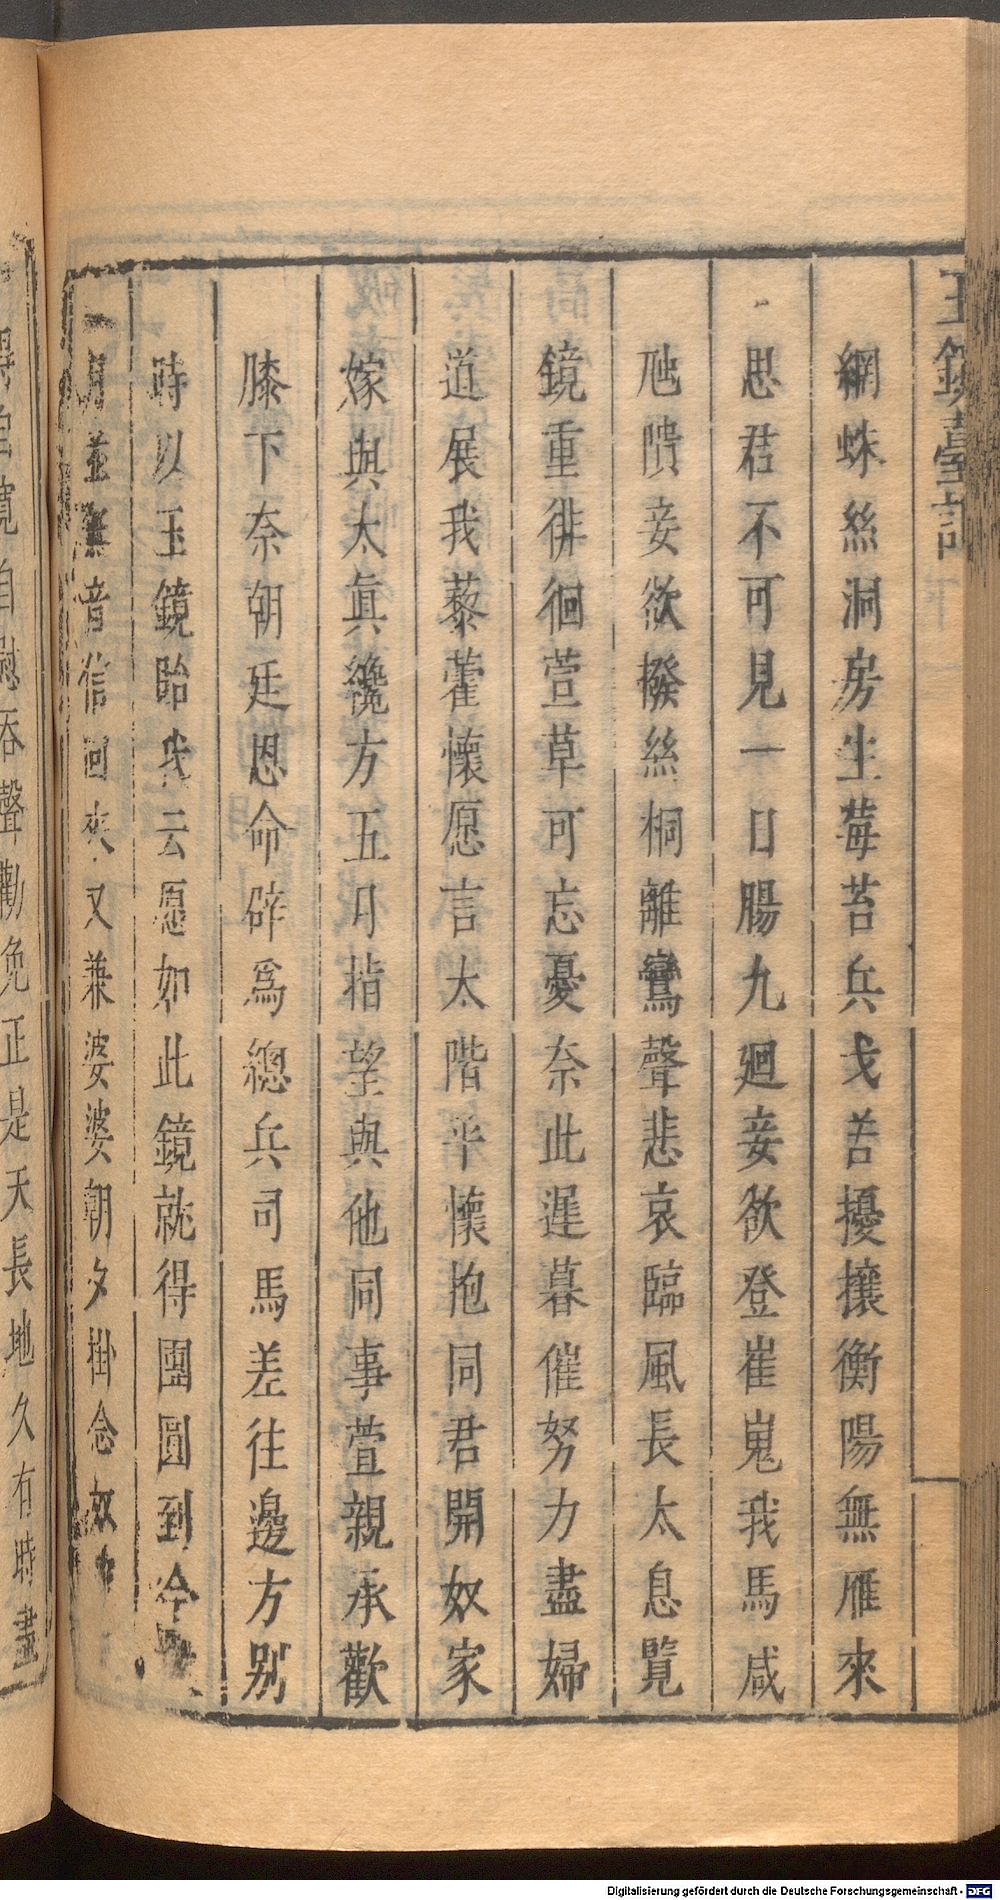 玉鏡臺記
網蛛絲洞房生莓苔兵戈苦擾攘衡陽無雁來
思君不可見一日腸九廻妾欲登崔嵬我馬咸
虺隤妾欲撥絲桐離鸞聲悲哀臨風長太息覽
鏡重徘徊萱草可忘憂奈此遲暮催努力盡婦
道展我藜藿懷愿言太階平懷抱同君開奴家
嫁與太眞纔方五月指望與他同事萱親承歡
膝下奈朝廷恩命辟爲總兵司馬差往邊方别
時以玉鏡貽我云愿如此鏡就得團圓到今
月並無音信回來又兼婆婆朝夕掛念奴
自寬自慰吞聲勸免正是天長地久有時盡
Digitalisierung gefördert durch die Deutsche Forschungsgemeinschaft - DFG